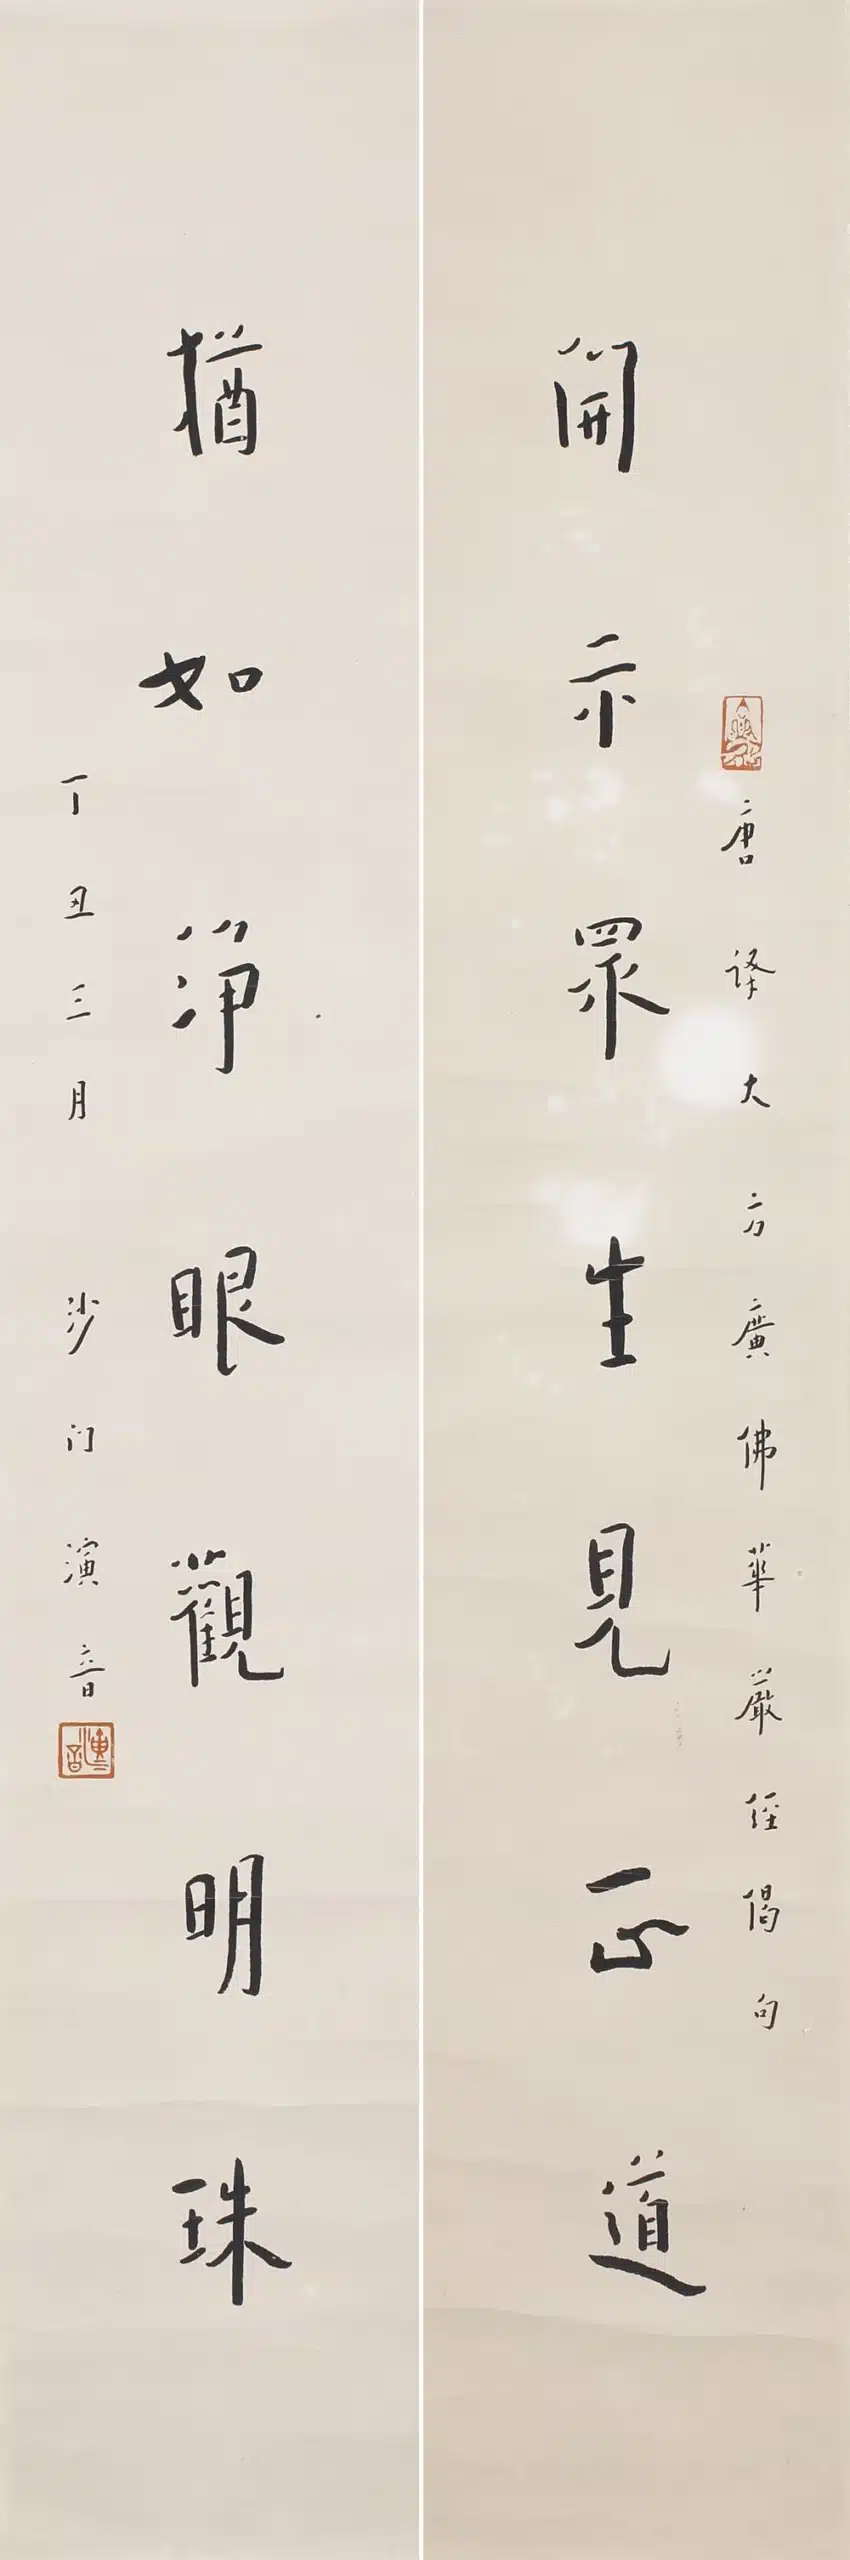 唐譯大方廣佛華嚴經偈句
開示眾生見正道
猶如淨眼觀明珠
丁丑三月 沙门演音
演音